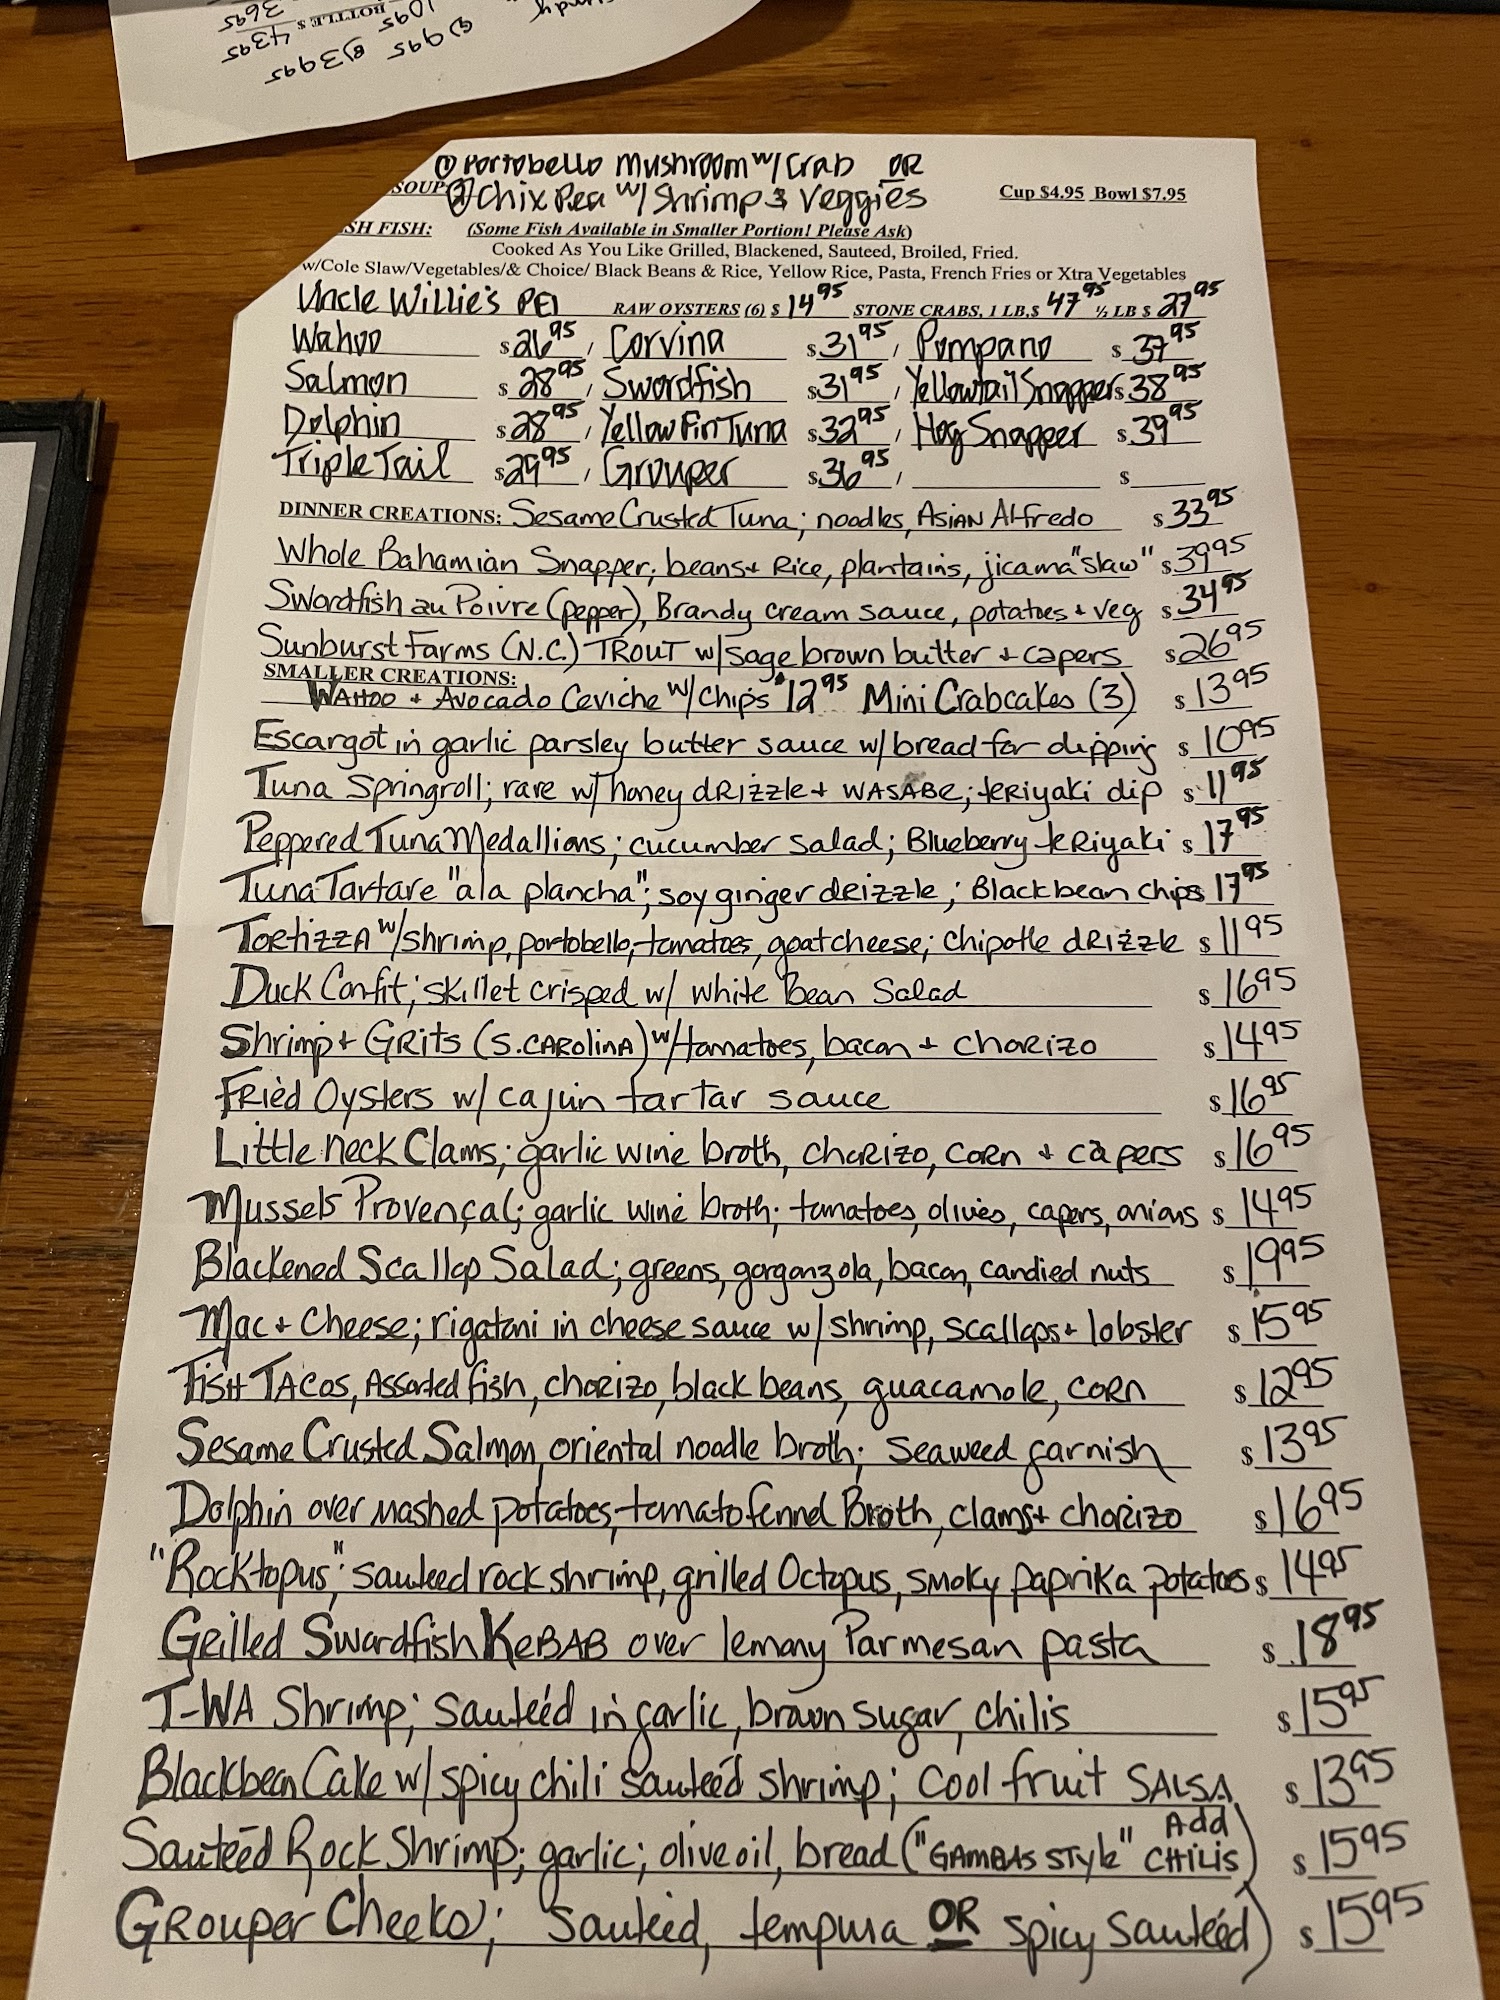 3695
BOTTLE $ 4395
1095
6) 995 8) 3995
① Portobello Mushroom w/ Crab OR
SOUP ② Chix Pea w/ Shrimp & Veggies Cup $4.95 Bowl $7.95
SH FISH: (Some Fish Available in Smaller Portion! Please Ask)
Cooked As You Like Grilled, Blackened, Sauteed, Broiled, Fried.
w/Cole Slaw/Vegetables/& Choice/ Black Beans & Rice, Yellow Rice, Pasta, French Fries or Xtra Vegetables
Uncle Willie's PEI RAW OYSTERS (6) $ 14 95 STONE CRABS, 1 LB,$ 47 95 ½ LB $ 27 95
Wahoo $ 26 95 / Corvina $ 31 95 / Pompano $ 37 95
Salmon $ 28 95 / Swordfish $ 31 95 / Yellowtail Snapper $ 38 95
Dolphin $ 28 95 / Yellow Fin Tuna $ 32 95 / Hog Snapper $ 39 95
Triple Tail $ 29 95 / Grouper $ 36 95 / $
DINNER CREATIONS: Sesame Crusted Tuna; noodles, Asian Alfredo $ 33 95
Whole Bahamian Snapper; beans + Rice, plantains, jicama "slaw" $ 39 95
Swordfish au Poivre (pepper), Brandy cream sauce, potatoes + veg $ 34 95
Sunburst Farms (N.C.) TROUT w/ sage brown butter + capers $ 26 95
SMALLER CREATIONS:
Wahoo + Avocado Ceviche w/ chips $ 12 95 Mini Crabcakes (3) $ 13 95
Escargot in garlic parsley butter sauce w/ bread for dipping $ 10 95
Tuna Springroll; rare w/ honey dRizzle + WASABE; teRiyaki dip $ 11 95
Peppered Tuna Medallions; cucumber salad; Blueberry teRiyaki $ 17 95
Tuna Tartare "ala plancha"; soy ginger dRizzle; Black bean chips 17 95
Tortizza w/ shrimp, portobello, tomatoes, goat cheese; chipotle dRizzle $ 11 95
Duck Confit; skillet crisped w/ white Bean Salad $ 16 95
Shrimp + GRits (S. CAROlinA) w/ tomatoes, bacon + choRizo $ 14 95
FRied Oysters w/ cajun tartar sauce $ 16 95
Little neck Clams; garlic wine broth, choRizo, corn + capers $ 16 95
Mussels Provençal; garlic wine broth; tomatoes, olives, capers, onions $ 14 95
Blackened Scallop Salad; greens, gorgonzola, bacon, candied nuts $ 19 95
Mac + Cheese; rigatoni in cheese sauce w/ shrimp, scallops + lobster $ 15 95
Fish TAcos, Assorted fish, chorizo, black beans, guacamole, corn $ 12 95
Sesame Crusted Salmon, oriental noodle broth; seaweed garnish $ 13 95
Dolphin over mashed potatoes, tomato fennel Broth, clams + chorizo $ 16 95
"Rocktopus"; sauteed rock shrimp, grilled Octopus, smoky paprika potatoes $ 14 95
Grilled Swordfish KeBAB over lemony Parmesan pasta $ 18 95
T-WA Shrimp; sauteéd in garlic, brown sugar, chilis $ 15 95
Blackbean Cake w/ spicy chili sauteéd shrimp; cool fruit SALSA $ 13 95
Sauteéd Rock Shrimp; garlic; olive oil, bread ("GAMBAS Style" Add CHILIS) $ 15 95
Grouper Cheeks; sauteéd, tempura OR spicy sauteéd) $ 15 95